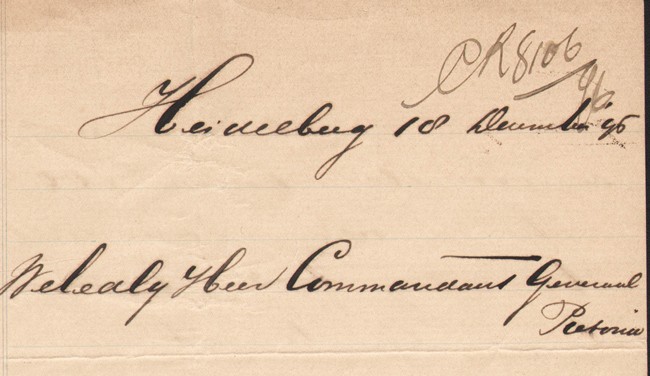 CR8106/96
Heidelberg 18 December '96
Weledly Heer Commandant General
Pretoria